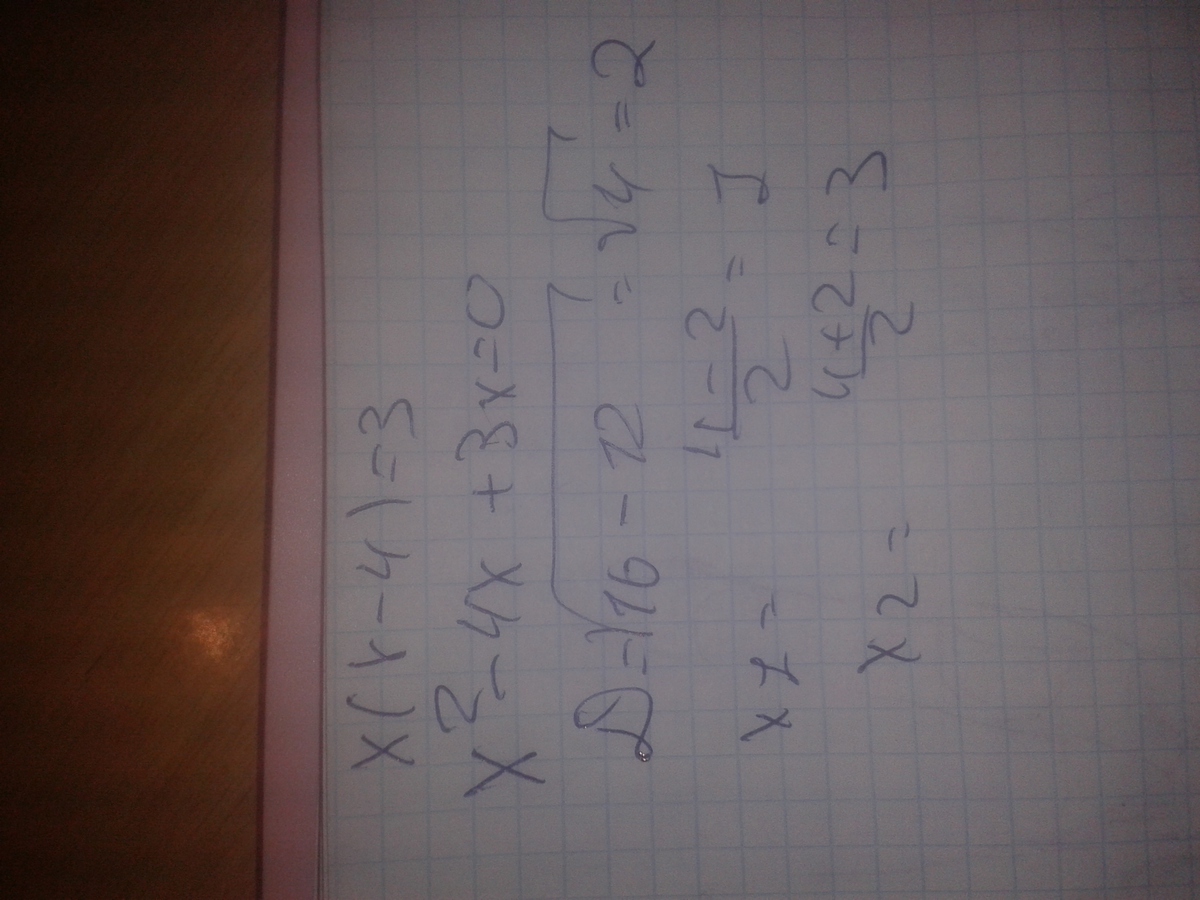 x(x-4)=3
x²-4x+3x=0
D=√16-12=√4=2
x1= 4-2/2=1
x2= 4+2/2=3